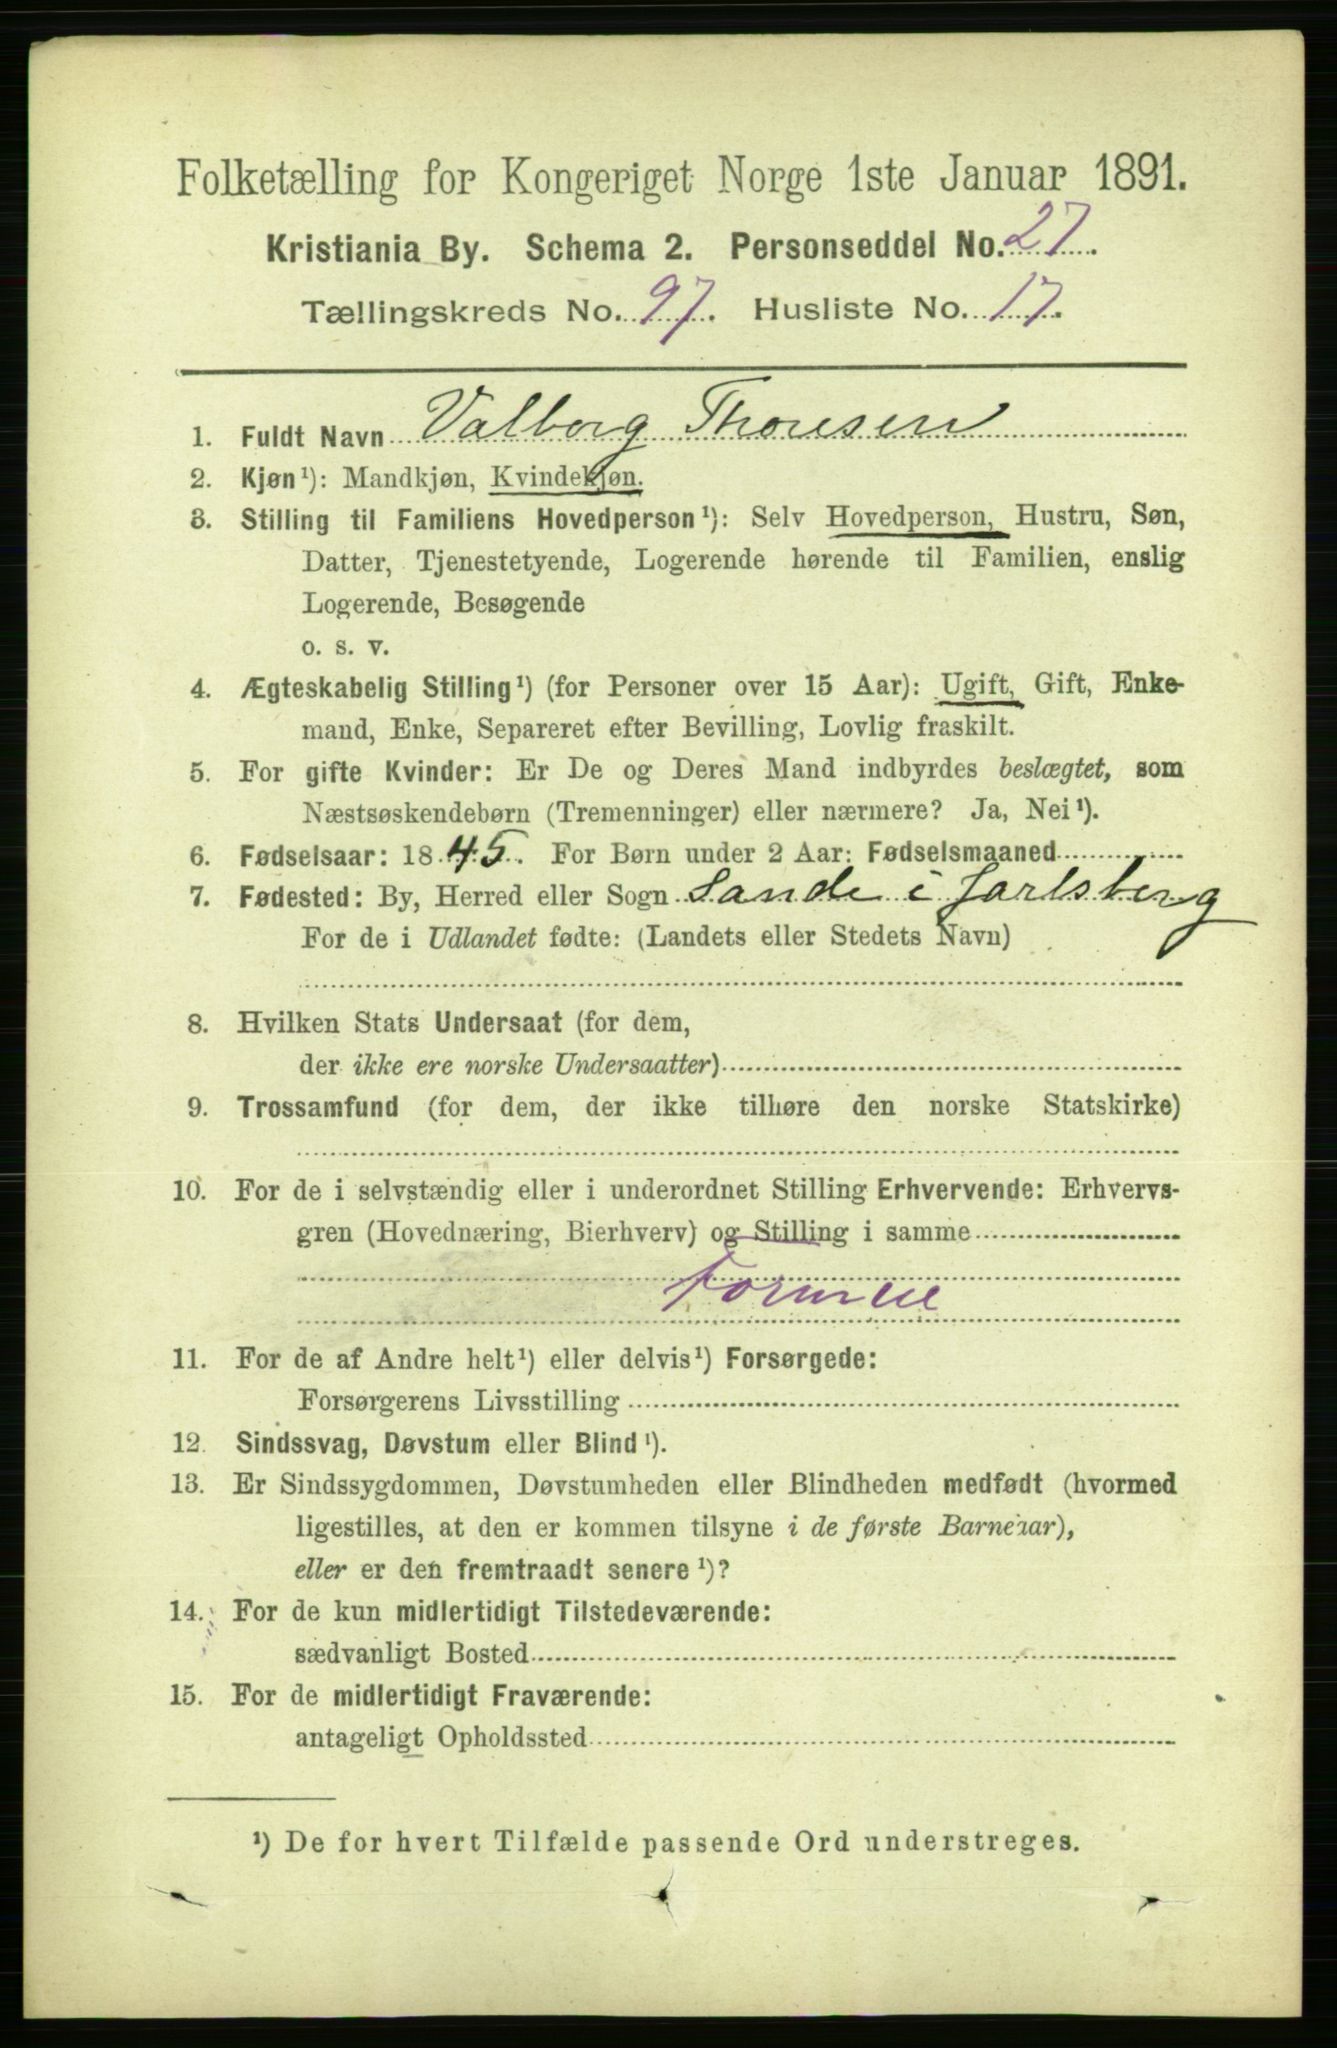 Folketælling for Kongeriget Norge 1ste Januar 1891.
Kristiania By. Schema 2. Personseddel No. 27.
Tællingskreds No. 97. Husliste No. 17.
1. Fuldt Navn Valborg Thoresen
2. Kjøn¹): Mandkjøn, Kvindekjøn.
3. Stilling til Familiens Hovedperson¹): Selv Hovedperson, Hustru, Søn,
Datter, Tjenestetyende, Logerende hørende til Familien, enslig
Logerende, Besøgende
o. s. v.
4. Ægteskabelig Stilling¹) (for Personer over 15 Aar): Ugift, Gift, Enke-
mand, Enke, Separeret efter Bevilling, Lovlig fraskilt.
5. For gifte Kvinder: Er De og Deres Mand indbyrdes beslægtet, som
Næstsøskendebørn (Tremenninger) eller nærmere? Ja, Nei¹).
6. Fødselsaar: 1845. For Børn under 2 Aar: Fødselsmaaned
7. Fødested: By, Herred eller Sogn Sande i Jarlsberg
For de i Udlandet fødte: (Landets eller Stedets Navn)
8. Hvilken Stats Undersaat (for dem,
der ikke ere norske Undersaatter)
9. Trossamfund (for dem, der ikke tilhøre den norske Statskirke)
10. For de i selvstændig eller i underordnet Stilling Erhvervende: Erhvervs-
gren (Hovednæring, Bierhverv) og Stilling i samme
Formue
11. For de af Andre helt¹) eller delvis¹) Forsørgede:
Forsørgerens Livsstilling
12. Sindssvag, Døvstum eller Blind¹).
13. Er Sindssygdommen, Døvstumheden eller Blindheden medfødt (hvormed
ligestilles, at den er kommen tilsyne i de første Barneaar),
eller er den fremtraadt senere¹)?
14. For de kun midlertidigt Tilstedeværende:
sædvanligt Bosted
15. For de midlertidigt Fraværende:
antageligt Opholdssted
¹) De for hvert Tilfælde passende Ord understreges.